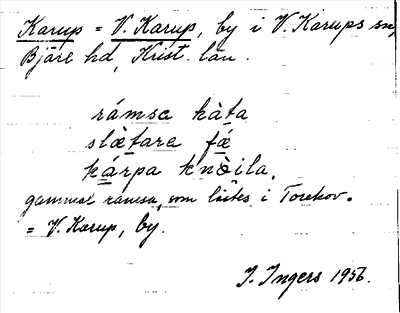 Karup = V. Karup, by i V. Karups sn,
Bjäre hd, Krist. län.
rámsa hàta
slæ̀tara fǽ
kárpa knòila.
gammal ramsa, som lästes i Torekov.
= V. Karup, by.
I. Ingers 1956.